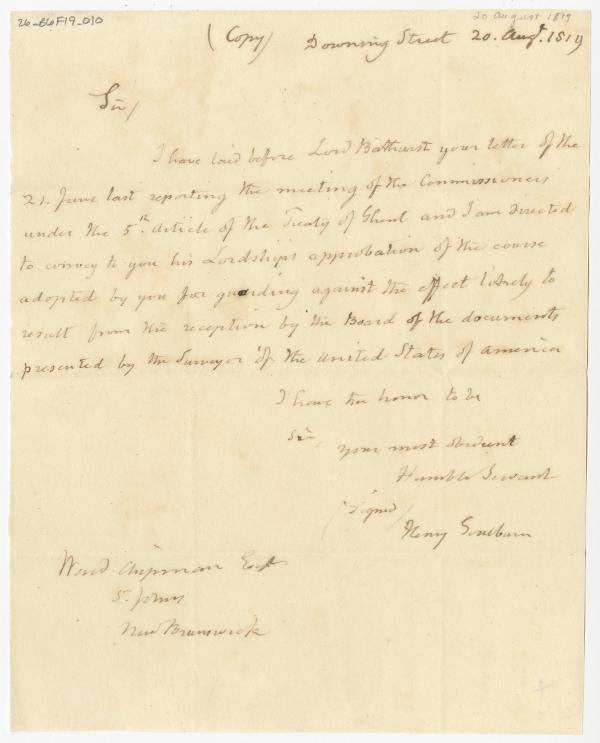 26-B6F19_010
20 August 1819
(Copy) Downing Street 20. Augt. 1819
Sir/
I have laid before Lord Bathurst your letter of the
21. June last reporting the meeting of the Commissioners
under the 5th. Article of the Treaty of Ghent and I am directed
to convey to you his Lordships approbation of the course
adopted by you for guarding against the effect likely to
result from the reception by the Board of the documents
presented by the Surveyor of the United States of America
I have the honor to be
Sir,
your most obedient
Humble Servant
(Signed)
Henry Goulburn
Ward Chipman Esqr
St. Johns
New Brunswick